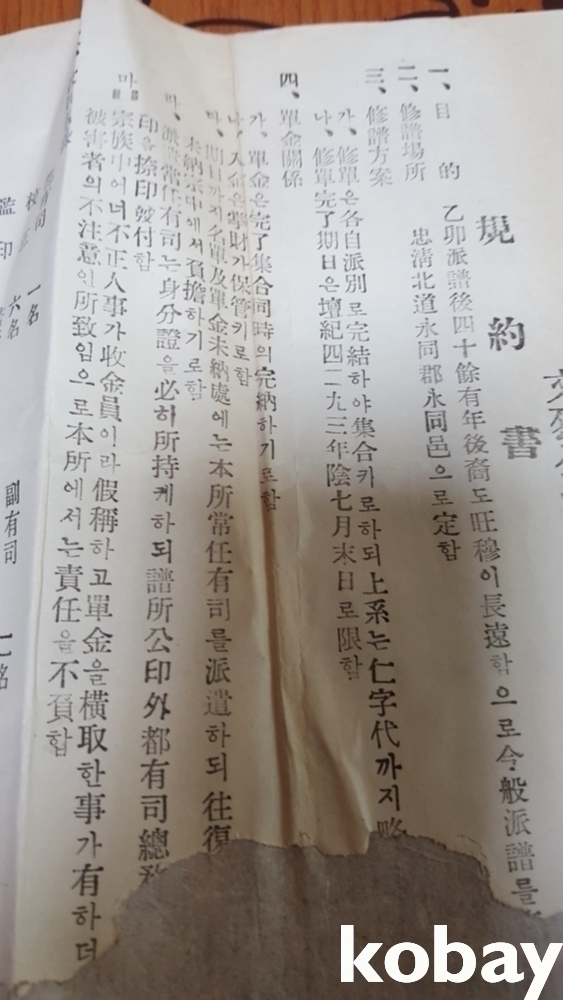 規約書
一、目的
乙卯派譜後四十餘有年後裔도旺穆이長遠함으로今般派譜를
二、修譜場所
忠淸北道永同郡永同邑으로定함
三、修譜方案
가、修單은各自派別로完結하야集合키로하되上系는仁字代까지略
나、修單完了期日은壇紀四二九三年陰七月末日로限함
四、單金關係
가、單金은完了集合同時의完納하기로함
나、入金은掌財가保管키로함
다、期日까지名單及單金未納處에는本所常任有司를派遣하되往復
未納宗中에서負擔하기로함
라、派遣常任有司는身分證을必히所持케하되譜所公印外都有司總務
印을捺印發付함
마、宗族中어너不正人事가收金員이라假稱하고單金을橫取한事가有하더
被害者의不注意인所致임으로本所에서는責任을不負함
都有司 一名
副有司 一名
六名
監印
kobay